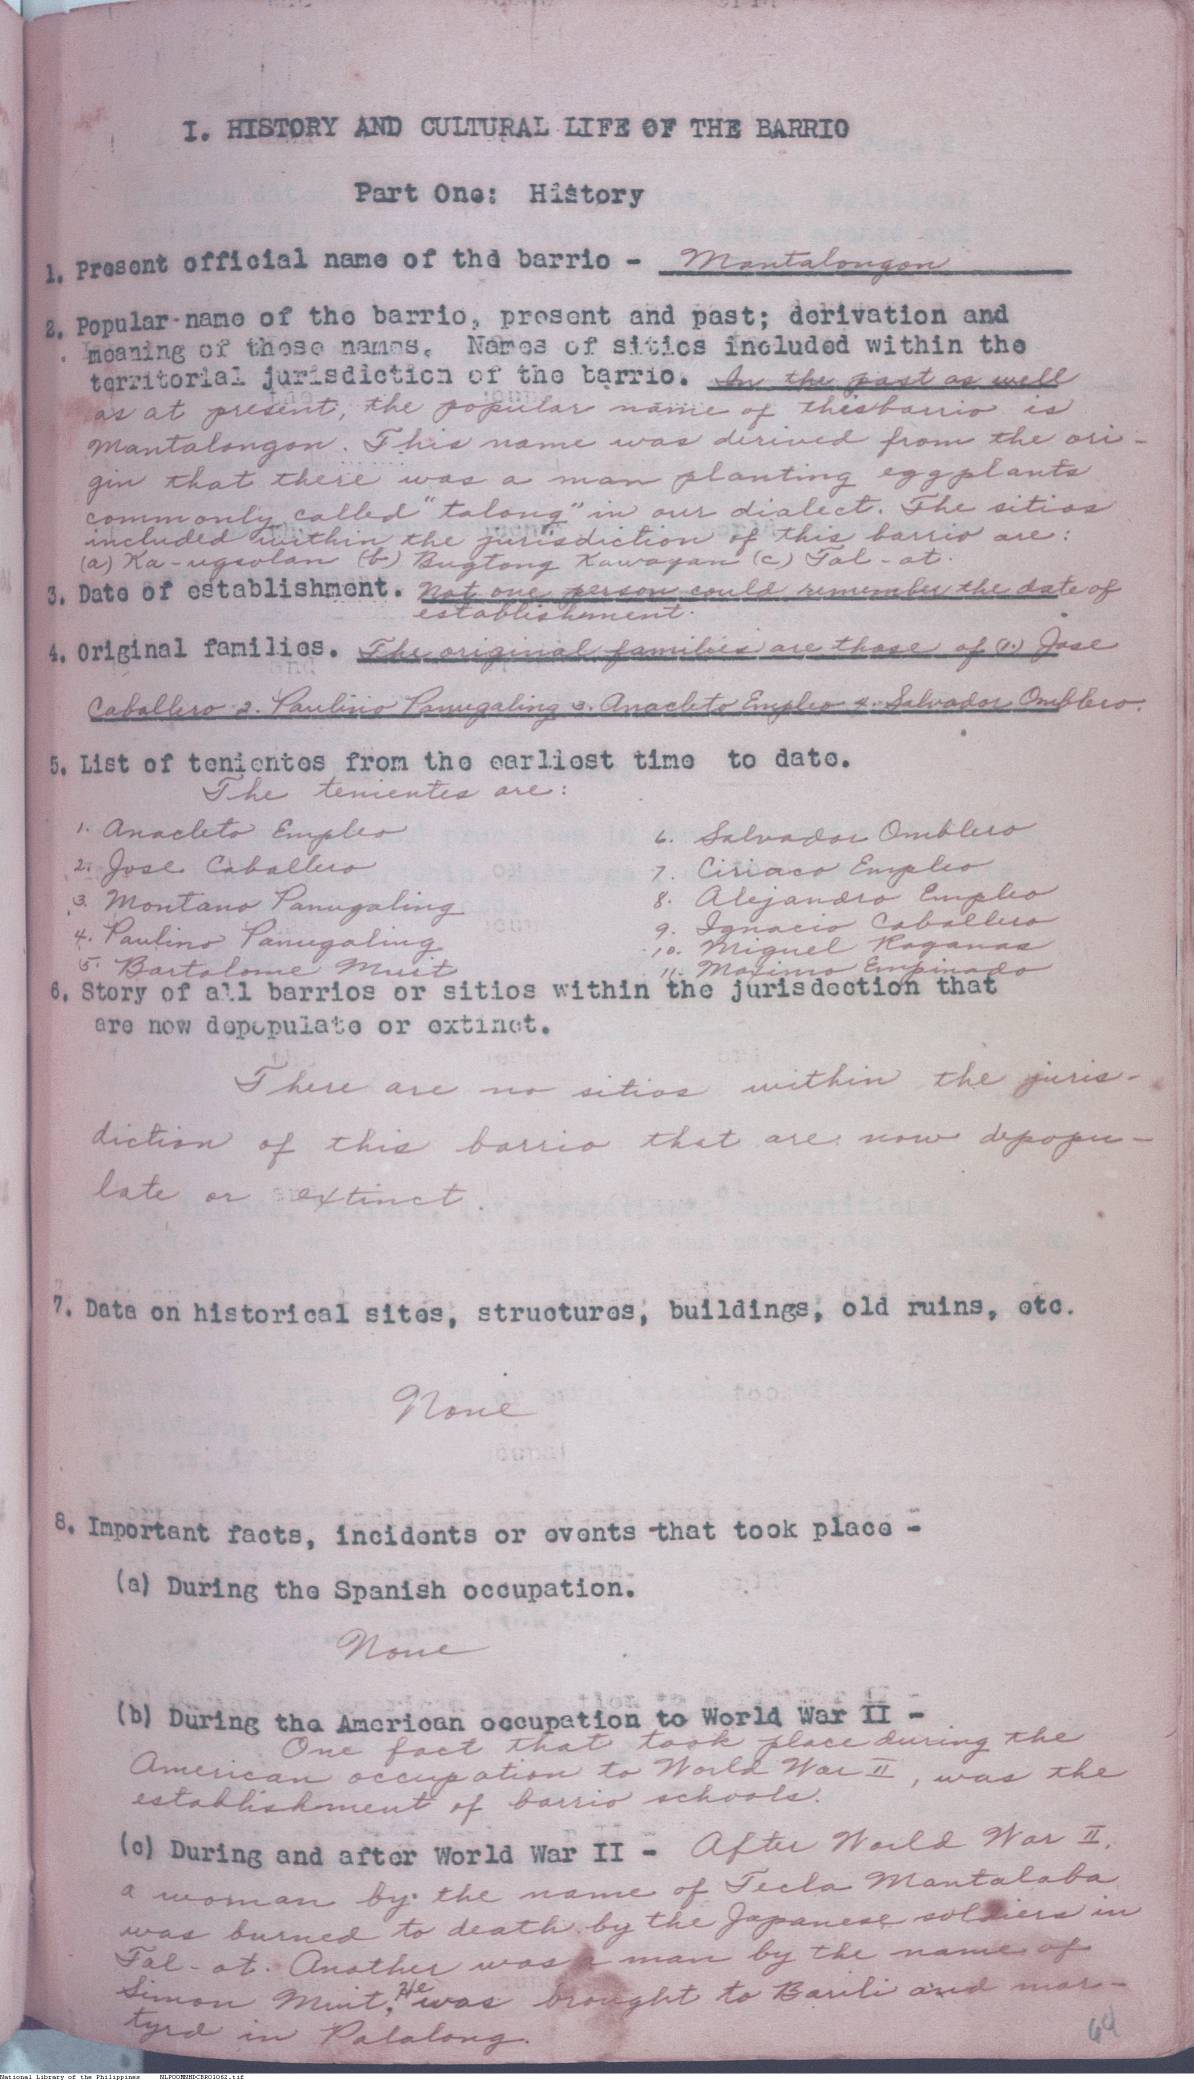 I. HISTORY AND CULTURAL LIFE OF THE BARRIO
Part One: History
1. Present official name of the barrio - Mantalongon
2. Popular name of the barrio, present and past; derivation and
meaning of these names. Names of sitios included within the
territorial jurisdiction of the barrio. In the past as well
as at present, the popular name of this barrio is
Mantalongon. This name was derived from the ori-
gin that there was a man planting eggplants
commonly called "talong" in our dialect. The sitios
included within the jurisdiction of this barrio are:
(a) Ka-ugsolan (b) Bugtong Kawayan (c) Tal-ot.
3. Date of establishment. Not one person could remember the date of
establishment.
4. Original families. The original families are those of (1.) Jose
Caballero 2. Paulino Panugaling 3. Anacleto Empleo 4. Salvador Omblero.
5. List of tenientes from the earliest time to date.
The tenientes are:
1. Anacleto Empleo
2. Jose Caballero
3. Montano Panugaling
4. Paulino Panugaling
5. Bartolome Muit
6. Salvador Omblero
7. Ciriaco Empleo
8. Alejandro Empleo
9. Ignacio Caballero
10. Miguel Raganas
11. Maximo Empinado
6. Story of all barrios or sitios within the jurisdection that
are now depopulate or extinct.
There are no sitios within the juris-
diction of this barrio that are now depopu-
late or extinct.
7. Data on historical sites, structures, buildings, old ruins, etc.
None
8. Important facts, incidents or events that took place -
(a) During the Spanish occupation.
None
(b) During the American occupation to World War II -
One fact that took place during the
American occupation to World War II, was the
establishment of barrio schools.
(c) During and after World War II - After World War II,
a woman by the name of Tecla Mantalaba
was burned to death by the Japanese soldiers in
Tal-ot. Another was a man by the name of
Simon Muit. He was brought to Barili and mar-
tyrd in Palalong.
64
National Library of the Philippines NLPOOMNHDCBRO1062.tif